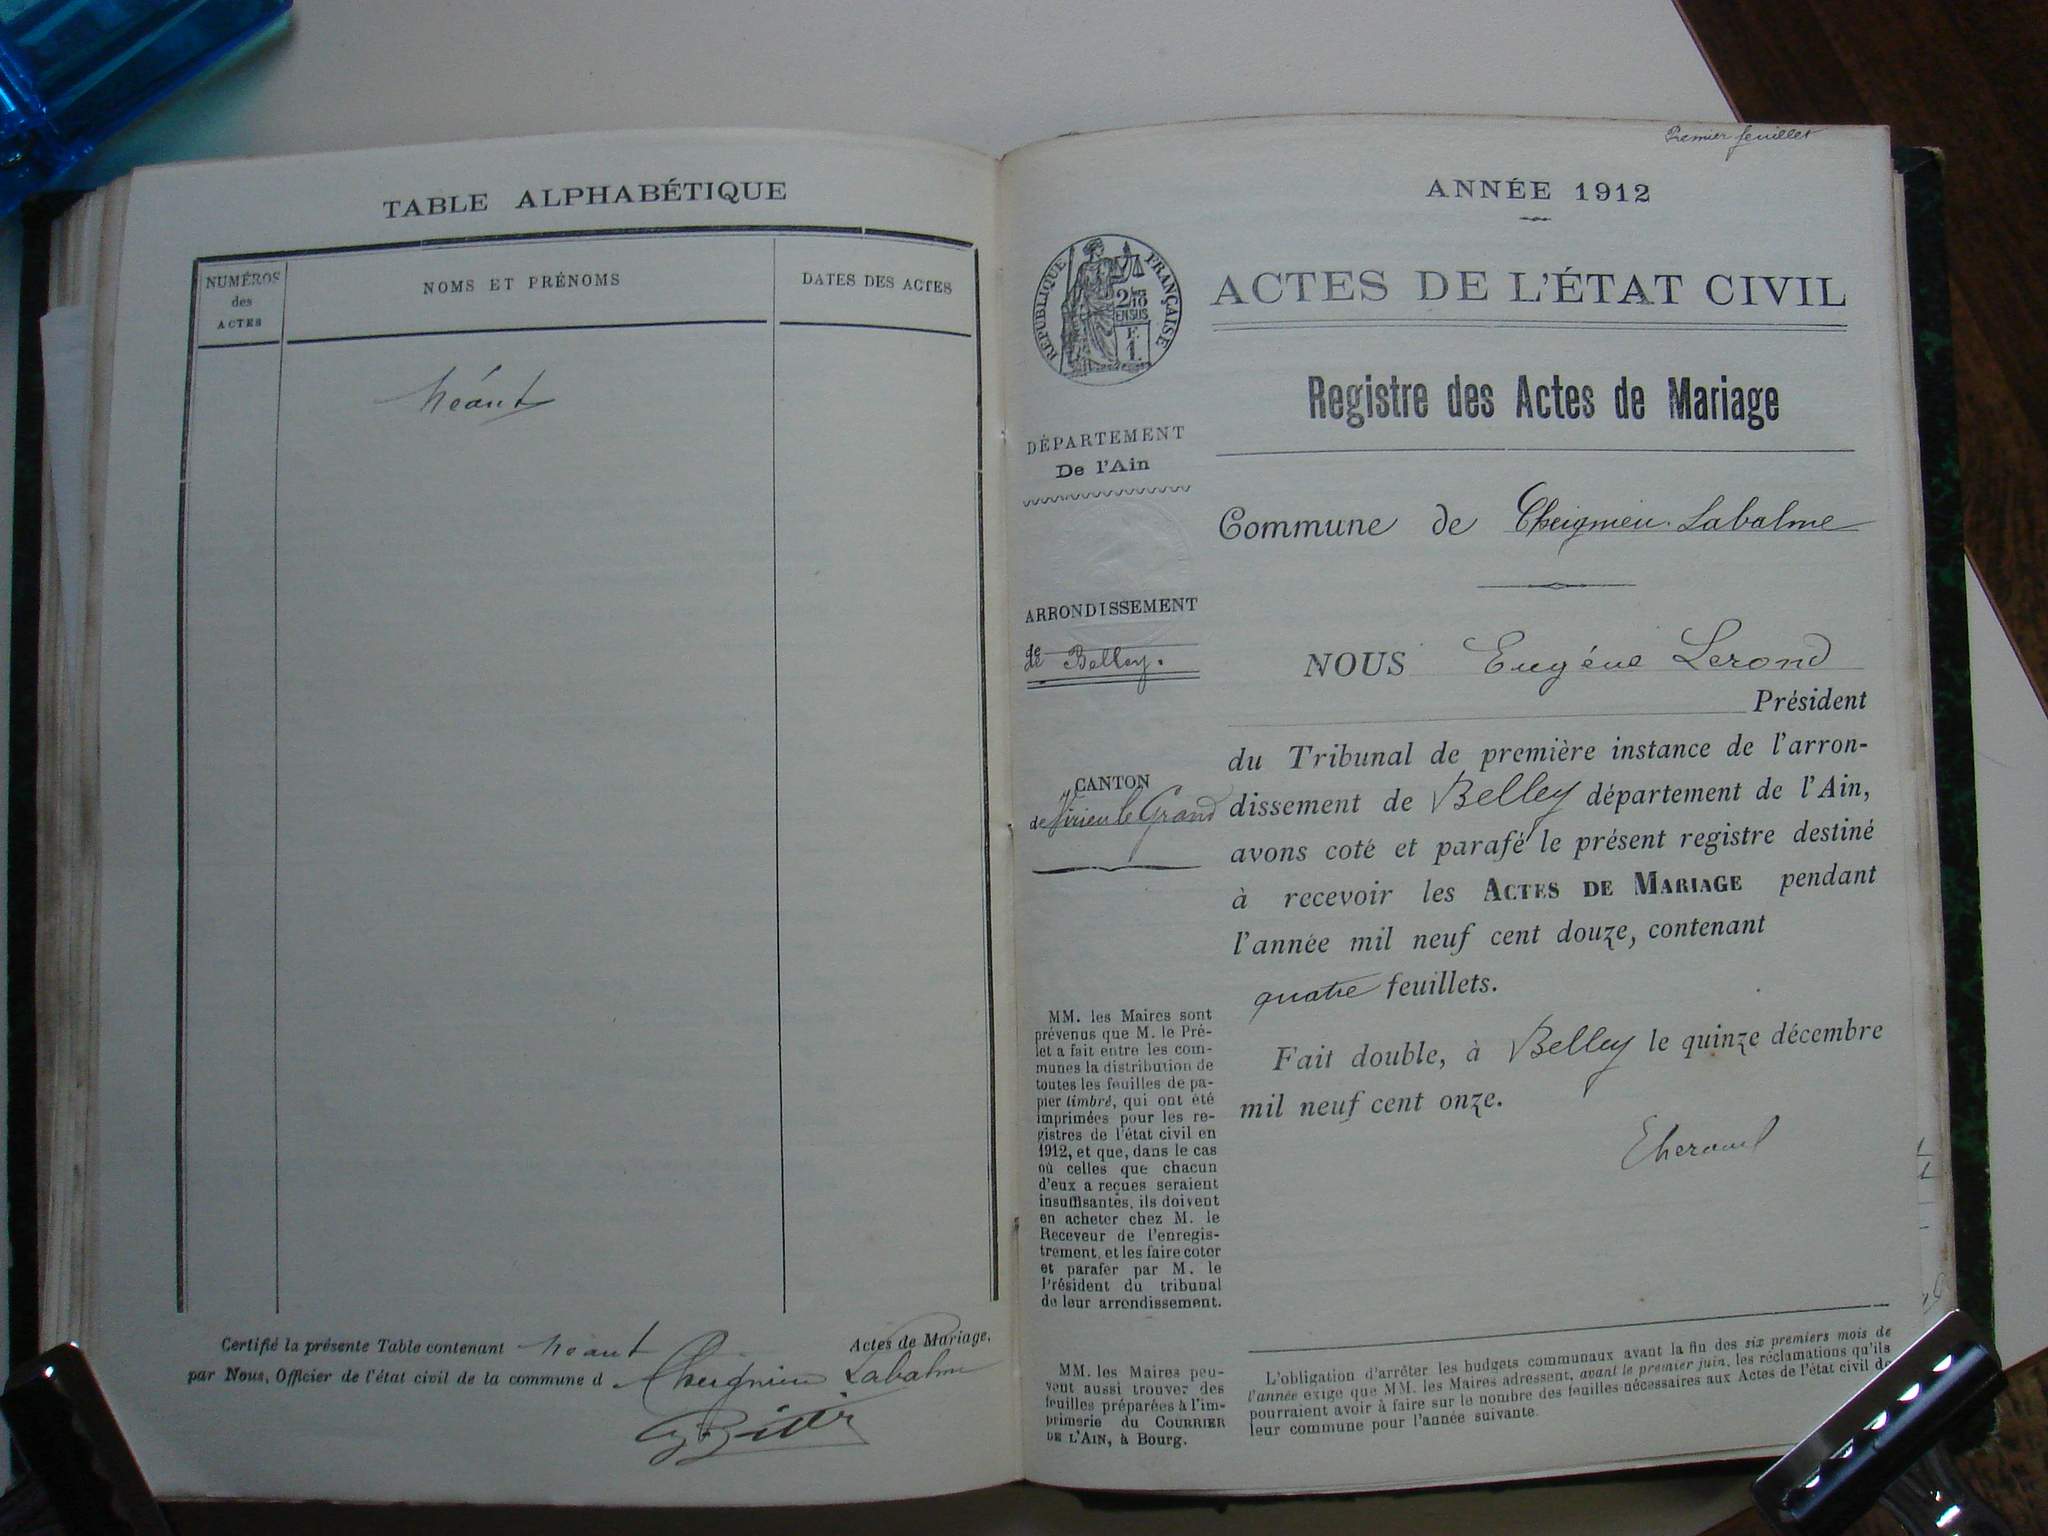 TABLE ALPHABÉTIQUE
NUMÉROS
des
ACTES
NOMS ET PRÉNOMS
DATES DES ACTES
Néant
Certifié la présente Table contenant néant Actes de Mariage,
par Nous, Officier de l'état civil de la commune d Cheignieu Labalme
Premier feuillet
ANNÉE 1912
RÉPUBLIQUE FRANÇAISE
2/10
EN SUS
F.
1.
ACTES DE L'ÉTAT CIVIL
Registre des Actes de Mariage
DÉPARTEMENT
De l'Ain
Commune de Cheignieu-Labalme
ARRONDISSEMENT
de
de Belley.
NOUS Eugène Lerond
Président
du Tribunal de première instance de l'arron-
dissement de Belley département de l'Ain,
avons coté et parafé le présent registre destiné
à recevoir les ACTES DE MARIAGE pendant
l'année mil neuf cent douze, contenant
quatre feuillets.
Fait double, à Belley le quinze décembre
mil neuf cent onze.
CANTON
de Virieu le Grand
MM. les Maires sont
prévenus que M. le Pré-
fet a fait entre les com-
munes la distribution de
toutes les feuilles de pa-
pier timbré, qui ont été
imprimées pour les re-
gistres de l'état civil en
1912, et que, dans le cas
où celles que chacun
d'eux a reçues seraient
insuffisantes, ils doivent
en acheter chez M. le
Receveur de l'enregis-
trement, et les faire coter
et parafer par M. le
Président du tribunal
de leur arrondissement.
MM. les Maires peu-
vent aussi trouver des
feuilles préparées à l'im-
primerie du COURRIER
DE L'AIN, à Bourg.
L'obligation d'arrêter les budgets communaux avant la fin des six premiers mois de
l'année exige que MM. les Maires adressent, avant le premier juin, les réclamations qu'ils
pourraient avoir à faire sur le nombre des feuilles nécessaires aux Actes de l'état civil de
leur commune pour l'année suivante.